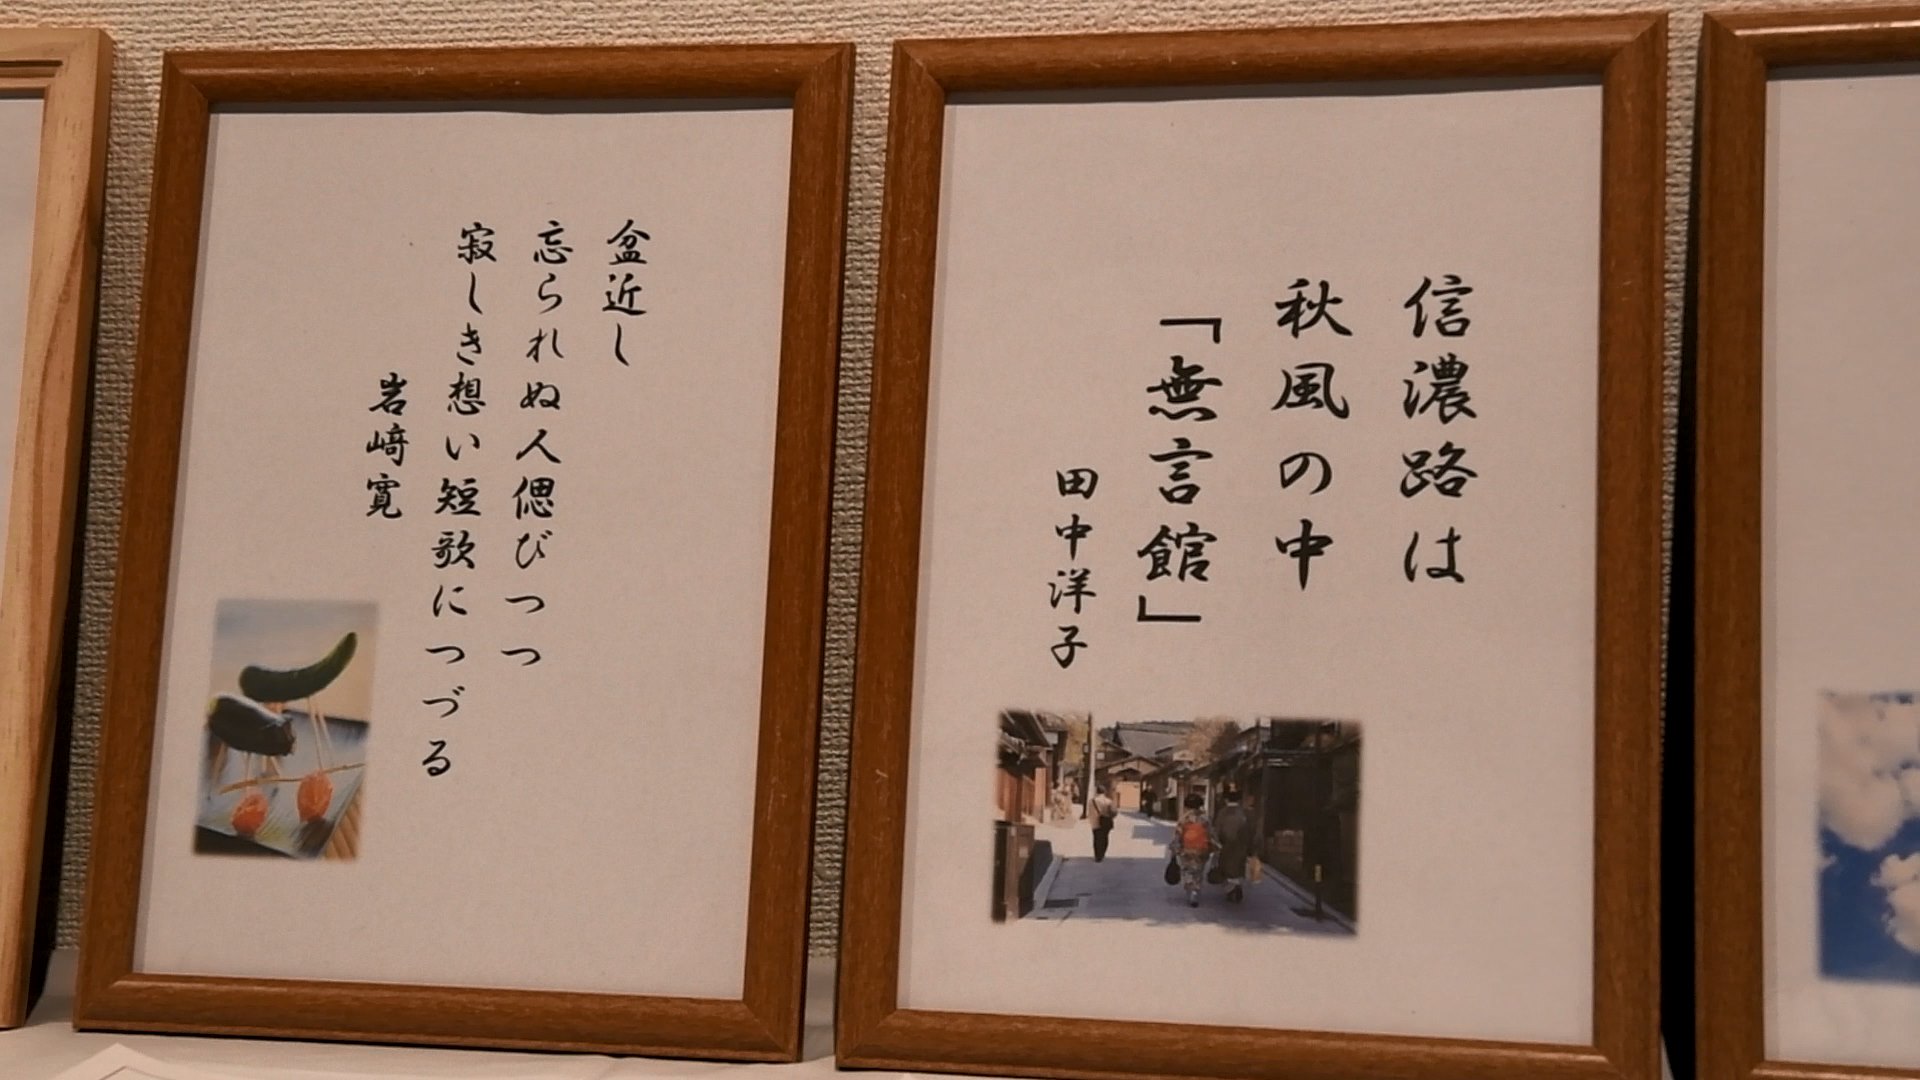 信濃路は
秋風の中
「無言館」
田中洋子
盆近し
忘られぬ人偲びつつ
寂しき想い短歌につづる
岩﨑寛